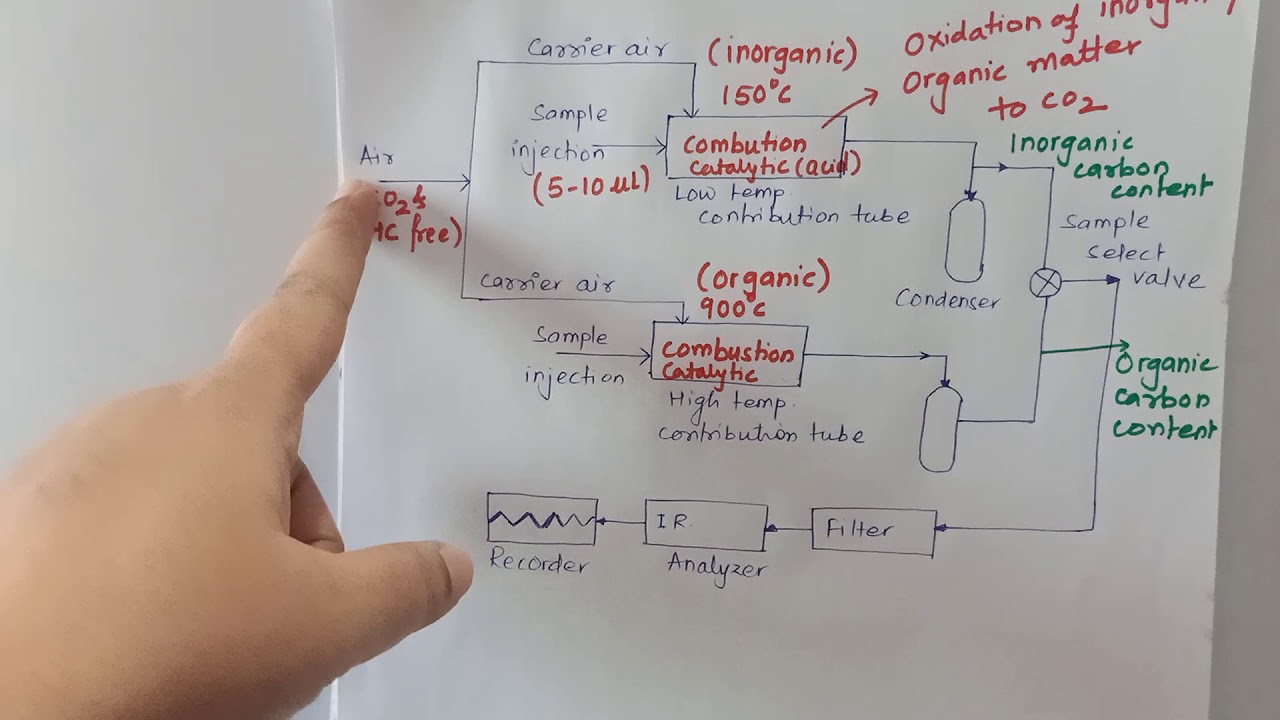 Carrier air
(inorganic)
150°C
Oxidation of
Organic matter
to CO2
Sample
injection
(5-10 μl)
Combution
Catalytic (acid)
Low temp.
contribution tube
Air
free)
Inorganic
carbon
content
Sample
select
valve
Condenser
Carrier air
(organic)
900°C
Sample
injection
Combustion
Catalytic
High temp.
contribution tube
Organic
carbon
content
Recorder
IR.
Analyzer
Filter